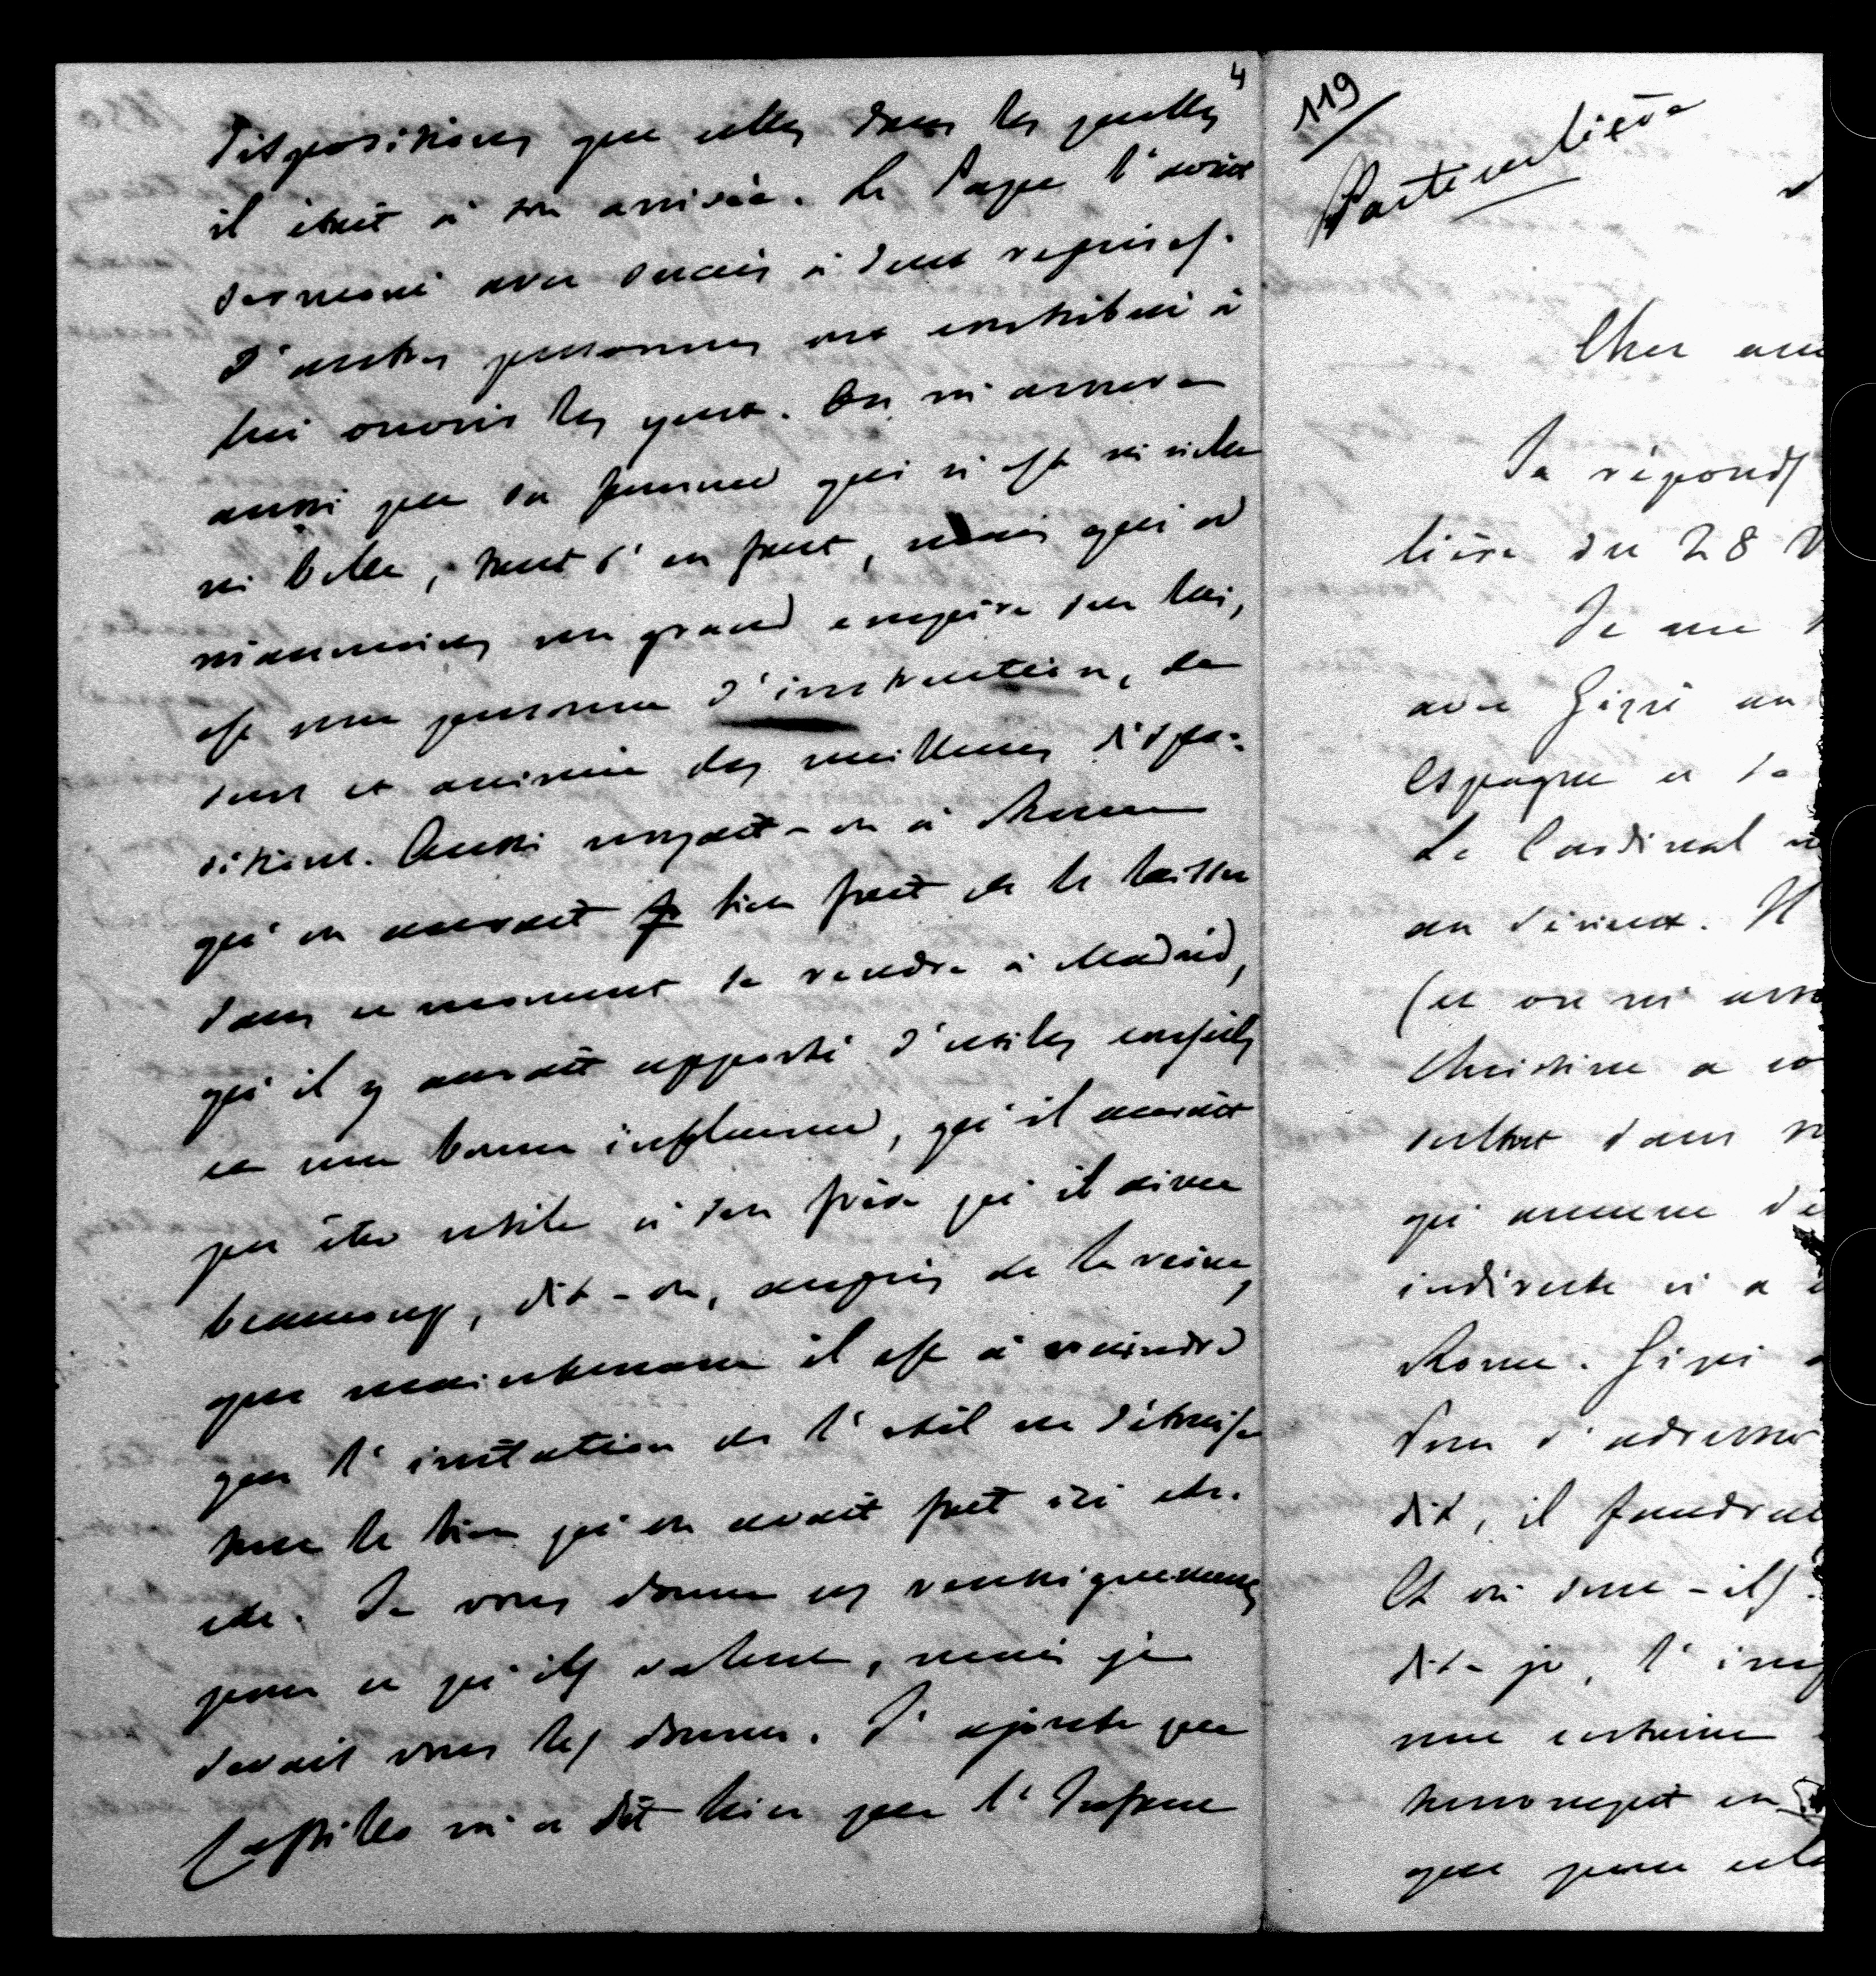 4
dispositions que celles dans les quelles
il était à son arrivée. Le Pape l'avait
sermoné avec succès à deux reprises.
D'autres personnes ont contribué à
lui ouvrir les yeux. On m'assure
aussi que sa femme qui n'est ni riche
ni belle, tant s'en faut, mais qui a
néanmoins un grand empire sur lui,
est une personne d'instruction, de
sens et animée des meilleures dispo-
sitions. Aussi croyait-on à Rome
qu'on aurait bien fait de le laisser
dans ce moment se rendre à Madrid,
qu'il y aurait apporté d'utiles conseils
et une bonne influence, qu'il aurait
pu être utile à son frère qu'il aime
beaucoup, dit-on, auprès de la reine,
que maintenant il est à craindre
que l'irritation de l'exil ne détruise
tout le bien qu'on avait fait ici etc.
etc. Je vous donne ces renseignements
pour ce qu'ils valent, mais je
devais vous les donner. J'ajoute que
Castillo m'a dit hier que l'Infant
119
Particulière
Cher am
Je réponds
lière du 28 D
Je me
avec Gizzi au
Espagne et de
Le Cardinal
au sérieux. Il
(et on m'assu
Christine a co
sultat dans
qu'aucune dé
indirecte n'a é
Rome. Gizzi
Pour s'adresser
dit, il faudrait
Et où sont-ils
dis-je, l'imp
une certaine
honoraient en
que pour cela